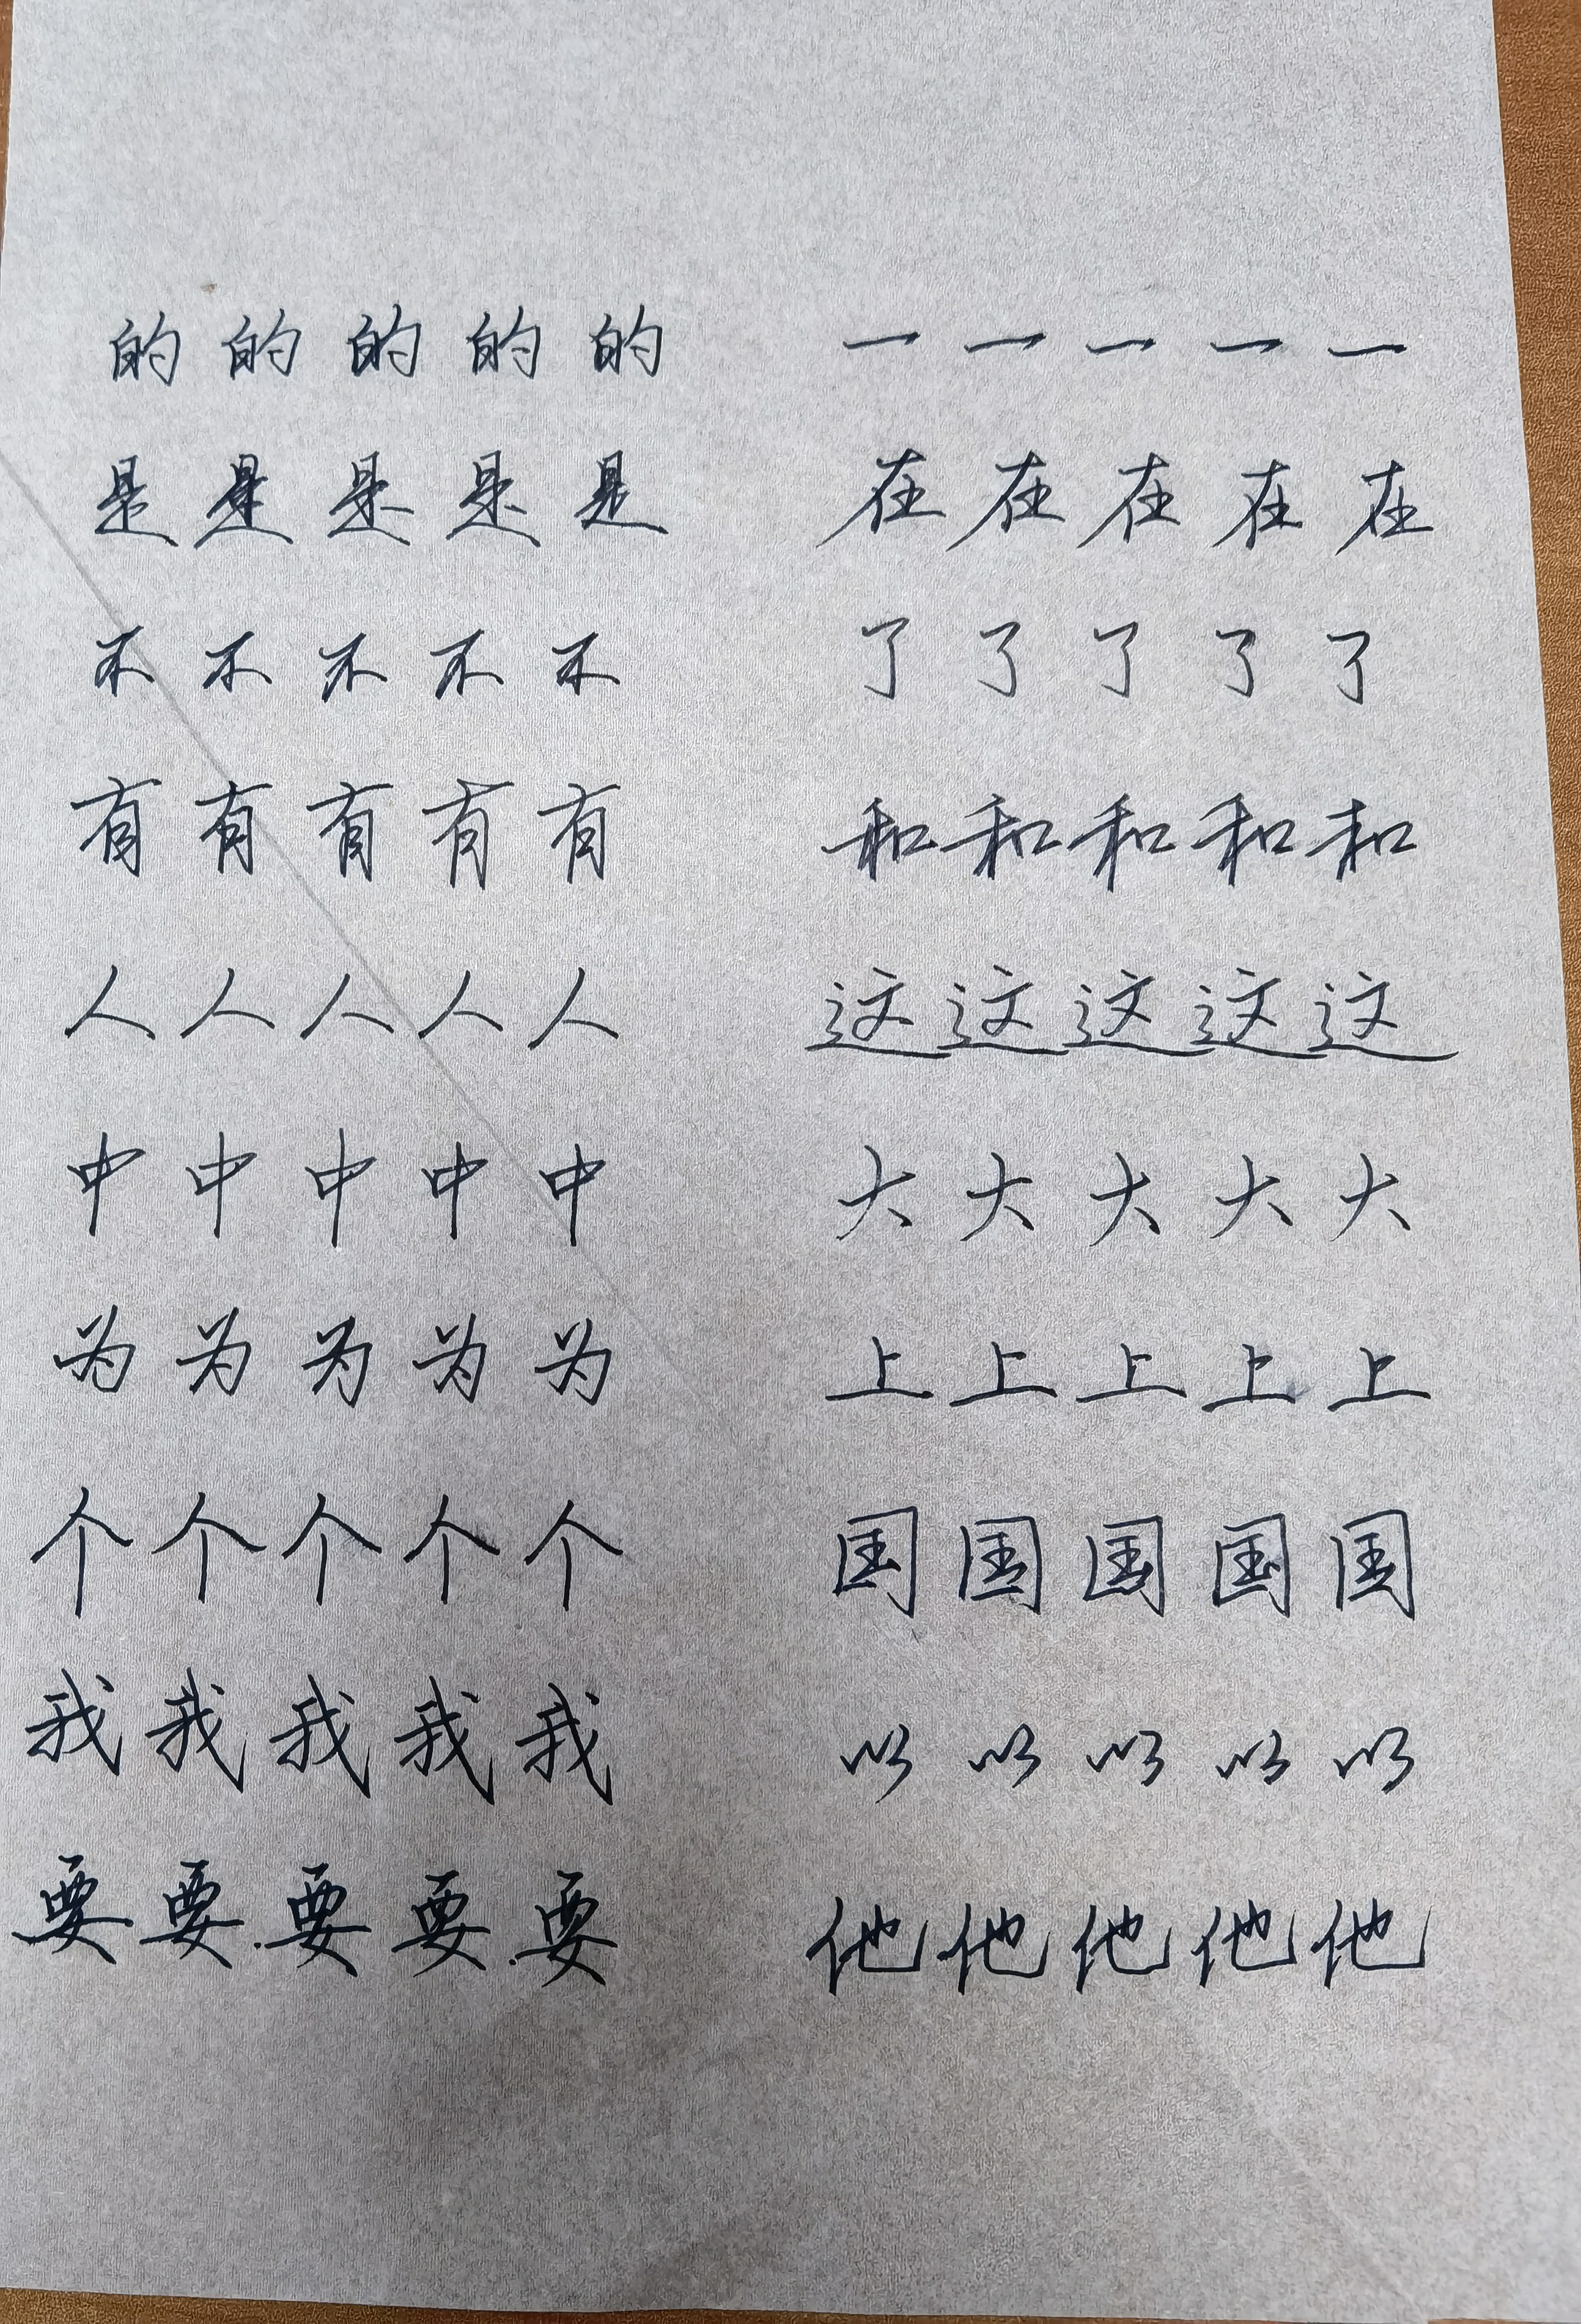 的 的 的 的 的 一 一 一 一 一
是 是 是 是 是 在 在 在 在 在
不 不 不 不 不 了 了 了 了 了
有 有 有 有 有 和 和 和 和 和
人 人 人 人 人 这 这 这 这 这
中 中 中 中 中 大 大 大 大 大
为 为 为 为 为 上 上 上 上 上
个 个 个 个 个 国 国 国 国 国
我 我 我 我 我 以 以 以 以 以
要 要 要 要 要 他 他 他 他 他